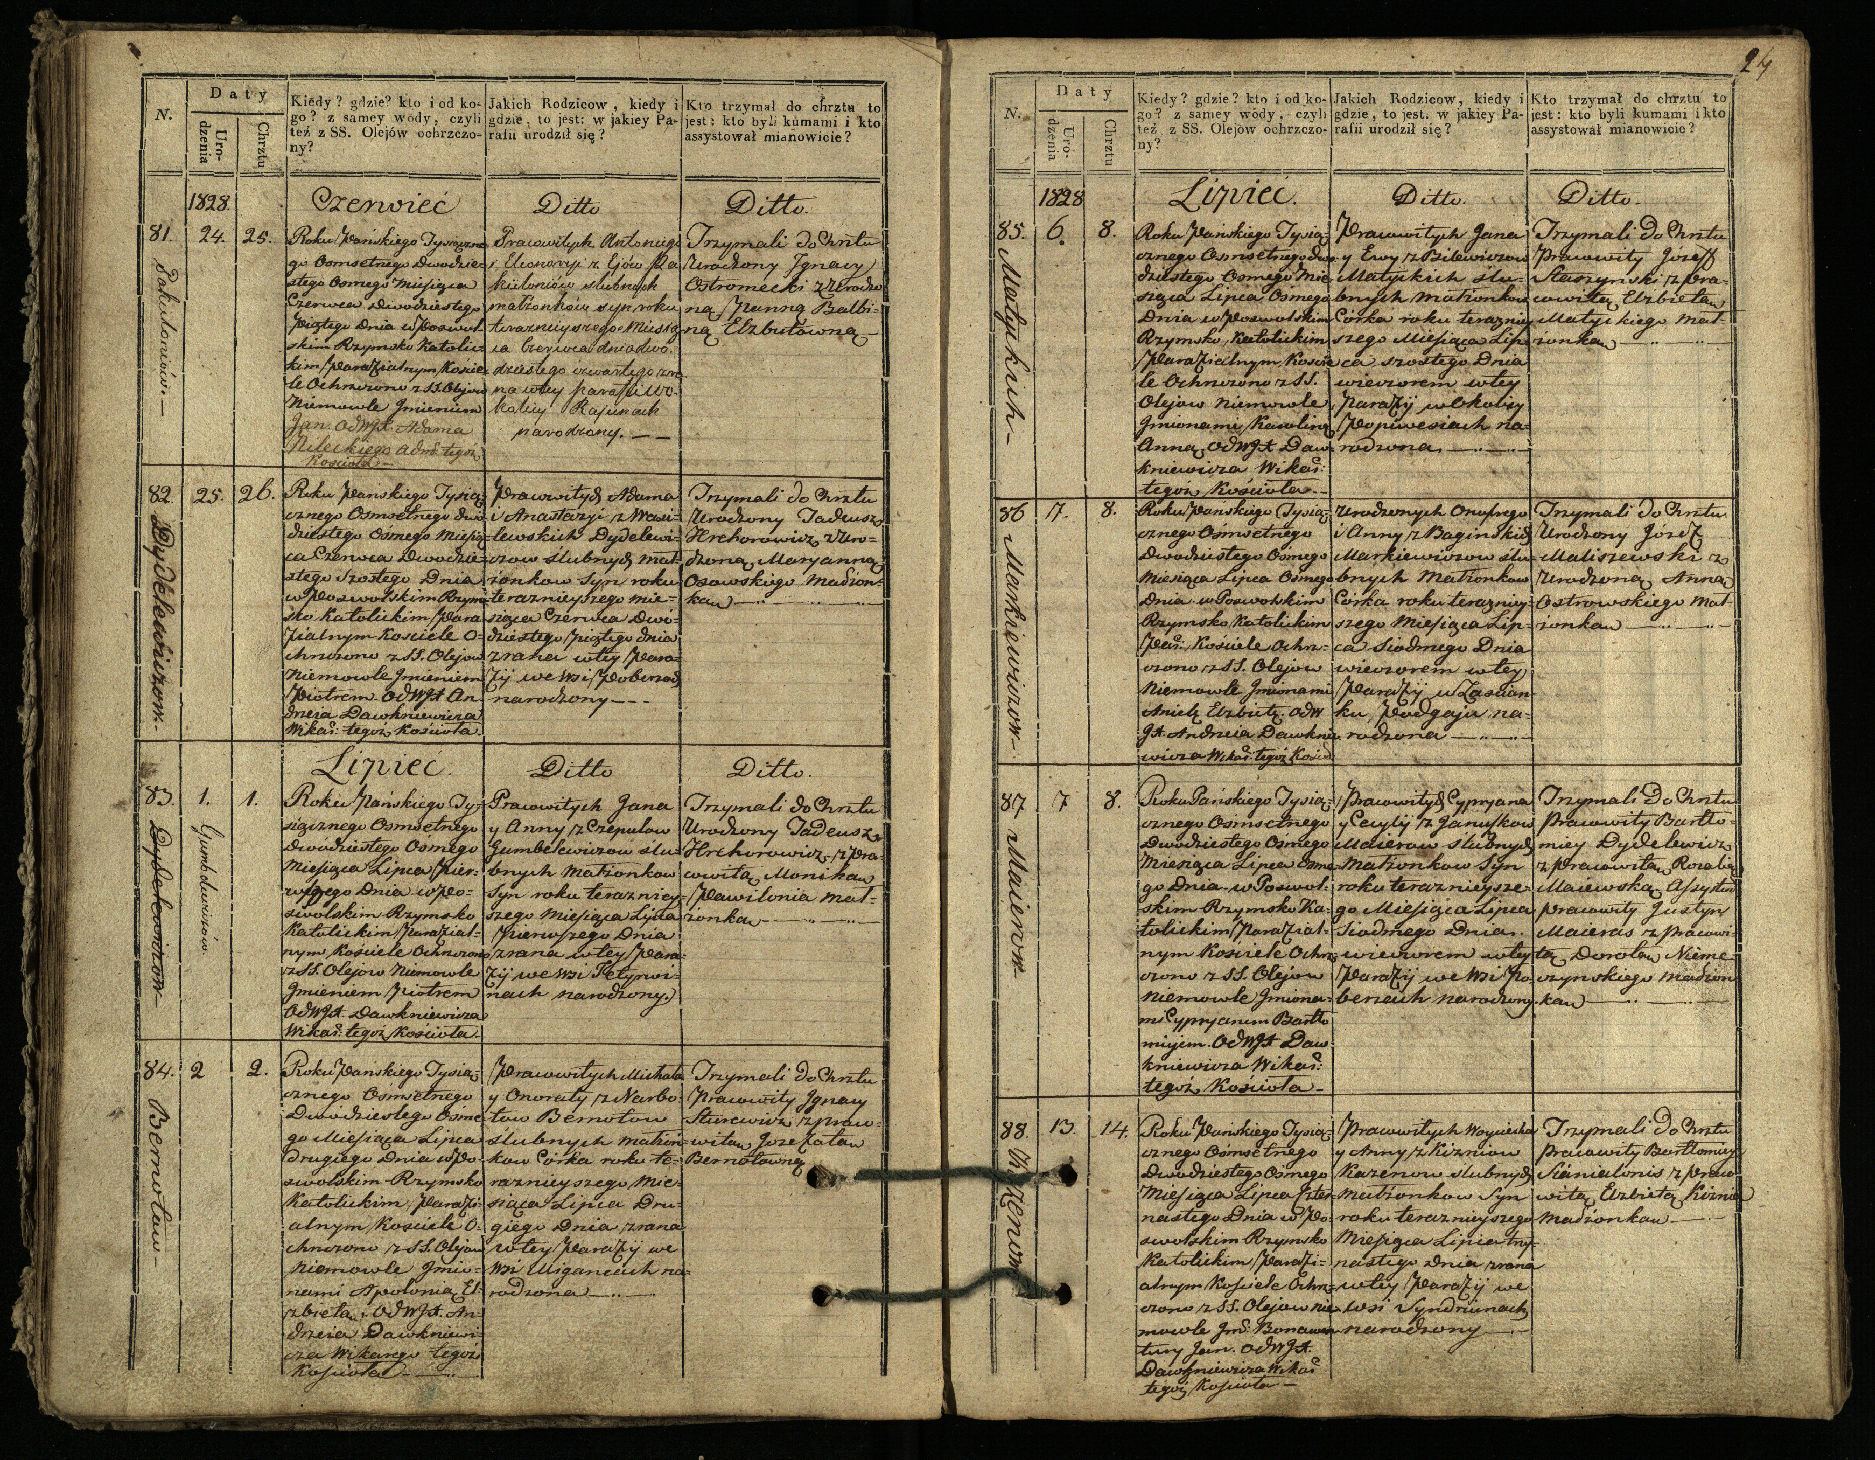 N.
Daty
Uro-
dzenia
Chrztu
Kiedy? gdzie? kto i od ko-
go? z samey wody, czyli
też z SS. Olejow ochrzczo-
ny?
Jakich Rodzicow, kiedy i
gdzie, to jest: w jakiey Pa-
rafii urodził się?
Kto trzymał do chrztu to
jest: kto byli kumami i kto
assystował mianowicie?
1828.
Czerwieć
Ditto
Ditto.
81.
24.
25.
Roku Pańskiego Tysiączne
go Osmsetnego Dwudzie
stego Osmego Miesiąca
Czerwca Dwudziestego
Piątego Dnia w Poswol
skim Rzymsko Katolic
kim Parafialnym Koście
le Ochrzczono z SS. Olejow
Niemowle Jmieniem
Jan. Od WJX. Adama
Kościoła
Pracowitych Antoniego
matżonków syn roku
teraznieyszego Miesią
ca Czerwca dwudzie
dziestego czwartego zra
na w tey parafii w O
narodzony.
Trzymali do Chrztu
Urodzony Jgnacy
Ostromecki z Urodzo
ną Panną Balbi-
ną Elzbutowną
82.
Dydelewiczow
25.
26.
Roku Pańskiego Tysią
cznego Osmsetnego Dwu
dziestego Osmego Miesią
ca Czerwca Dwudzie-
stego Szostego Dnia
w Poswolskim Rzym
sko Katolickim Para
fialnym Kościele O-
chrzczono z SS. Olejow
Niemowle Jmieniem
Piotrem Od WJX An-
drzeia Dawkniewicza
Wikař: tegoż Kościoła.
Pracowitych Adama
i Anastazyi z Wasi-
lewskich Dydelewi-
czow slubnych mat-
żonkow Syn roku
teraznieyszego mie-
siąca Czerwca Dwu-
dziestego piątego dnia
zrana w tey Para-
fij we Wsi
narodzony
Trzymali do Chrztu
Urodzony Tadeusz
Hrehorowicz z Uro-
dzoną Maryanną
Osowskiego Małżon-
kau
Lipiec.
Ditto
Ditto.
83.
Dydelewiczow
Gumbelewiczów.
1.
1.
Roku Pańskiego Ty-
siącznego Osmsetnego
Dwudziestego Osmego
Miesiąca Lipca Pier-
wszego Dnia w Po-
swolskim Rzymsko
Katolickim Parafial-
nym Kościele Ochrzczono
z SS. Olejow Niemowle
Jmieniem Piotrem
Od WJX. Dawkniewicza
Wikař: tegoż Kościoła.
Pracowitych Jana
y Anny z Czepulow
Gumbelewiczow slu-
bnych matżonkow
Syn roku terazniey-
szego Miesiąca Lipca
Pierwszego Dnia
zrana w tey Para-
fij we Wsi Petyrwi-
nach narodzony.
Trzymali do Chrztu
Urodzony Tadeusz
Hrehorowicz z Pra-
cowitą Moniką
Pawilonia Mał-
żonkau
84.
Bernotow
2
2.
Roku Pańskiego Tysią-
cznego Osmsetnego
Dwudziestego Osme
go Miesiąca Lipca
drugiego Dnia w Po-
swolskim Rzymsko
Katolickim Parafi-
alnym Kościele O-
chrzczono z SS. Olejow
Niemowle Jmio-
nami Apolonia El-
zbieta Od WJX. An-
drzeia Dawkniewi-
cza Wikarego tegoż
Kościoła
Pracowitych Michała
y Onoraty z Narbo-
tow Bernotow
slubnych matżon-
kow Córka roku te-
raznieyszego Mie-
siąca Lipca Dru-
giego Dnia zrana
w tey Parafij we
Wsi Migancach na-
rodzona
Trzymali do Chrztu
Pracowity Jgnacy
Sturewicz z Praco-
witą Jozefatau
Bernotowną
24
N.
Daty
Uro-
dzenia
Chrztu
Kiedy? gdzie? kto i od ko-
go? z samey wody, czyli
też z SS. Olejow ochrzczo-
ny?
Jakich Rodzicow, kiedy i
gdzie, to jest. w jakiey Pa-
rafii urodził się?
Kto trzymał do chrztu to
jest: kto byli kumami i kto
assystował mianowicie?
1828
Lipieć.
Ditto.
Ditto.
85.
Matyckich
6.
8.
Roku Pańskiego Tysią-
cznego Osmsetnego Dwu
dziestego Osmego Mie
siąca Lipca Osmego
Dnia w Poswolskim
Rzymsko Katolickim
Parafialnym Koscie
le Ochrzczono z SS.
Olejow Niemowle
Jmionami Karolina
Anna, Od WJX Daw-
kniewicza Wikař:
tegoż Kościoła
Pracowitych Jana
y Ewy z Bilewiczow
Matyckich slu-
bnych Matżonkow
Córka roku teraznie
szego Miesiąca Lip-
ca szostego Dnia
wieczorem w tey
Parafij w Okolicy
Popiwesiach na-
rodzona
Trzymali do Chrztu
Pracowity Jozeff
Staszynski z Pra-
cowitą Elzbietau
Matyckiego Mał-
żonkau
86
Markiewiczow
7.
8.
Roku Pańskiego Tysią-
cznego Osmsetnego
Dwudziestego Osmego
Miesiąca Lipca Osmego
Dnia w Poswolskim
Rzymsko Katolickim
Pař: Kościele Ochrz-
czono z SS. Olejow
Niemowle Jmionami
Anielę Elzbietę Od W
JX Andrzeia Dawknie
wicza Wikař: tegoż Kościo
Urodzonych Onufrego
i Anny z Baginskich
Markiewiczow slu-
bnych Matżonkow
Córka roku teraznie
szego Miesiąca Lip-
ca Siodmego Dnia
wieczorem w tey
Parafij w Zascian
ku Podgaju na-
rodzona
Trzymali do Chrztu
Urodzony Józef
Maliszewski z
Urodzoną Anną
Ostrowskiego Mał-
żonkau
87
Maierow
7
8.
Roku Pańskiego Tysią-
cznego Osmsetnego
Dwudziestego Osmego
Miesiąca Lipca Osme-
go Dnia w Poswol-
skim Rzymsko Ka-
tolickim Parafial-
nym Kościele Ochrz-
czono z SS. Olejow
Niemowle Jmiona-
mi Cypryanem Bartło
miejem. Od WJX Daw-
kniewicza Wikař:
tegoż Kościoła
Pracowitych Cypryana
y Cecylij z Januszkow
Maierow slubnych
Matżonkow Syn
roku teraznieysze-
go Miesiąca Lipca
Siodmego Dnia
wieczorem w tey
Parafij we Wsi Po-
berżach narodzony.
Trzymali do Chrztu
Pracowity Bartło-
miey Dydelewicz
z Pracowitą Rozalią
Maiewską Assystent
Pracowity Justyn
Maieras z Pracowi-
tą Dorotau Nieme-
czynskiego Małżon
kau
88.
Kuzenow
13.
14.
Roku Pańskiego Tysią-
cznego Osmsetnego
Dwudziestego Osmego
Miesiąca Lipca Czter-
nastego Dnia w Po-
swolskim Rzymsko
Katolickim Parafi-
alnym Kościele Ochrz-
czono z SS. Olejow Nie-
mowle Jmě Bonawen
tury Jan. Od WJX.
Dawkniewicza Wikař
tegoż Kościoła
Pracowitych Woyciecha
y Anny z Kiżniow
Kazenow slubnych
Matżonkow Syn
roku teraznieyszego
Miesiąca Lipca trzy-
nastego Dnia zrana
w tey Parafij we
wsi Syndriunach
narodzony
Trzymali do Chrztu
Pracowity Bartłomiey
z Praco
witą Elzbietą Kiżnia
Małżonkau